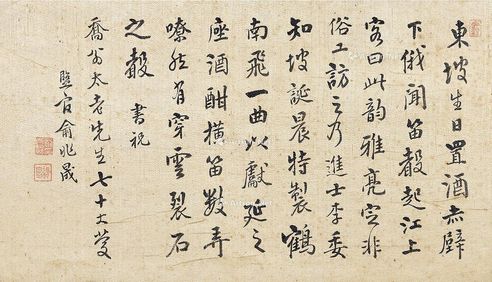 東坡生日置酒赤壁
下俄聞笛聲起江上
客曰此韵雅亮定非
俗工訪之乃進士李委
知坡誕晨特製鶴
南飛一曲以獻延之
座酒酣橫笛數弄
嘹然有穿雲裂石
之聲 書祝
喬翁太老先生七十大慶
盬官俞兆晟